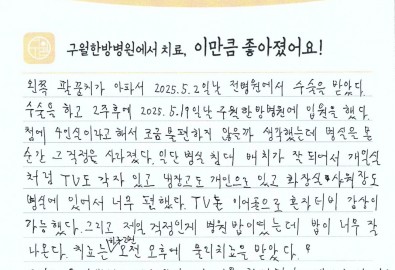 구월한방병원에서 치료, 이만큼 좋아졌어요!
왼쪽 팔꿈치가 아파서 2025.5.2일날 전병원에서 수술을 받았다.
수술을 하고 2주후에 2025.5.19일날 구월한방병원에 입원을 했다.
첨에 4인실이라고 해서 조금 불편하지 않을까 생각했는데 병실을 본
순간 그 걱정은 사라졌다. 일단 병실 침대 배치가 잘 되어서 개인실
처럼 TV도 각자 있고 냉장고도 개인으로 있고 화장실 샤워장도
병실에 있어서 너무 편했다. TV는 이어폰으로 혼자 감상이
가능했다. 그리고 제일 걱정인게 병원 밥이였는데 밥이 너무 잘
나온다. 치료는 오전 오후에 물리치료를 받았다.